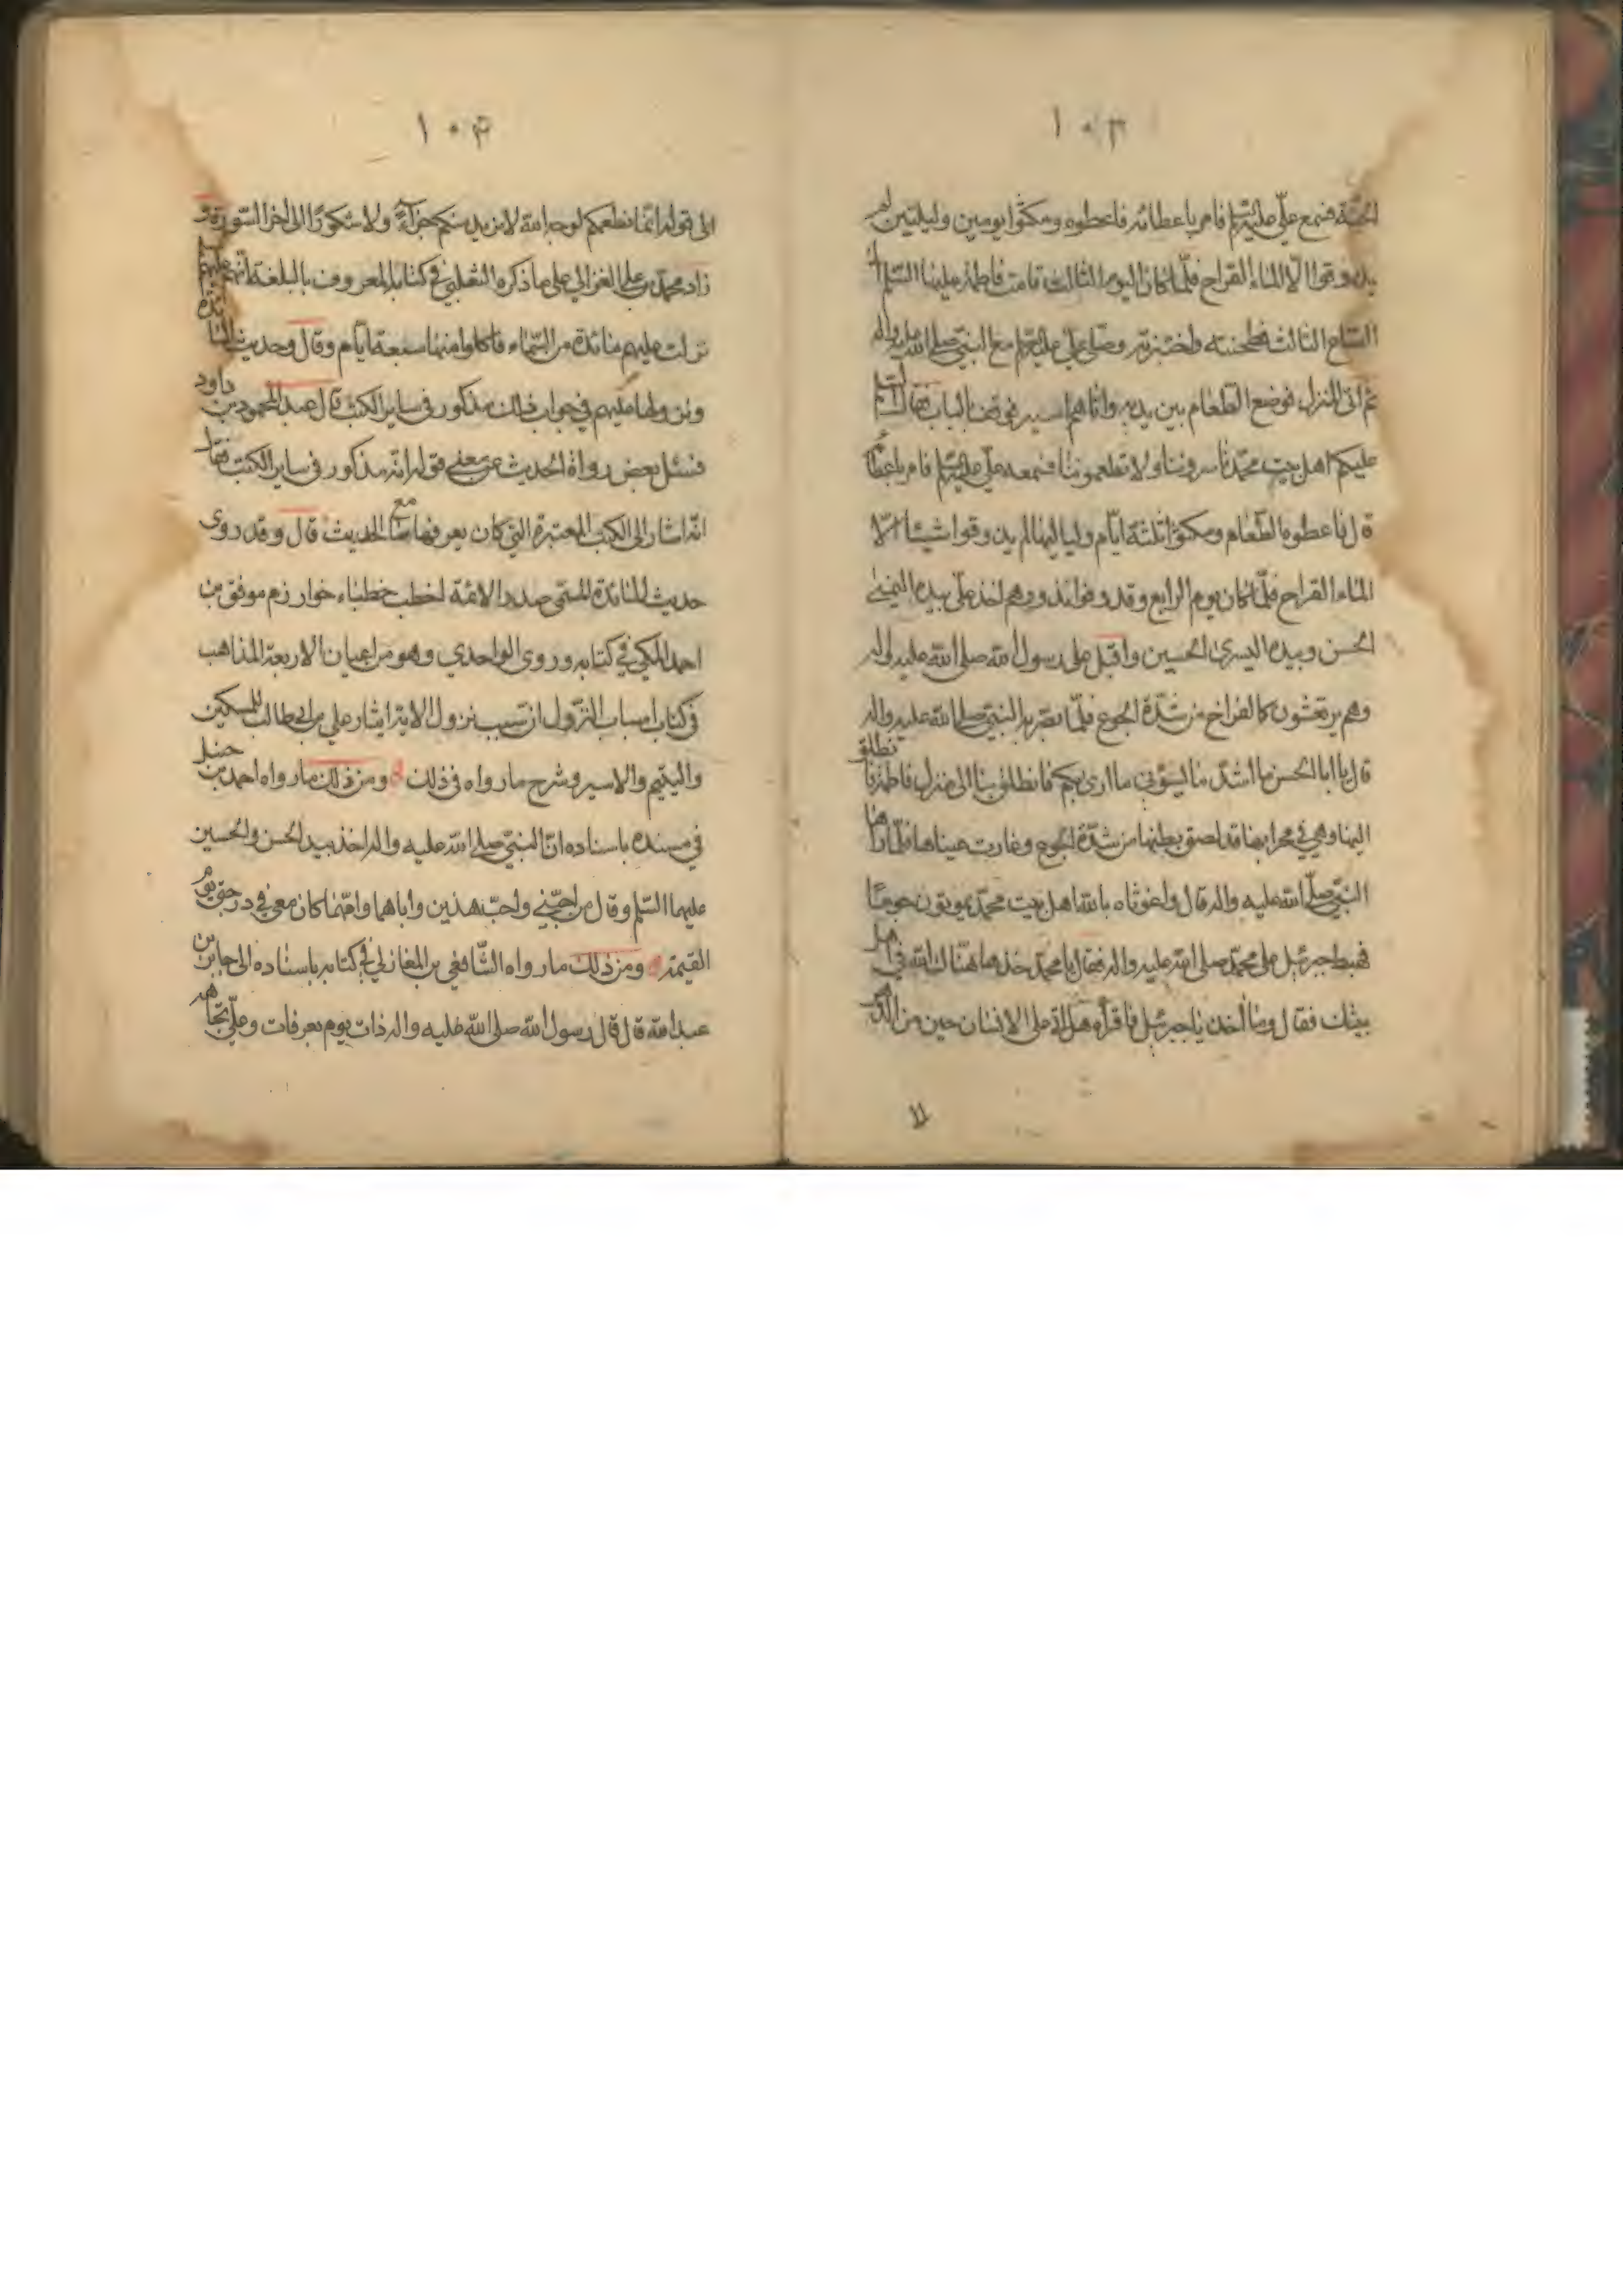 ۱۰۳
الجنّة فسمع عليّ عليه السّلم فامر باعطائه فاعطوه ومكثوا يومين وليلتين لم
يذوقوا الّا الماء القراح فلمّا كان اليوم الثالث قامت فاطمة عليها السّلم الى
الصّاع الثالث فطحنته واختبزته وصلّى عليّ عليه السّلم مع النبيّ صلى الله عليه واله
ثم اتى المنزل فوضع الطعام بين يديه واتاهم اسير فوقف بالباب فقال السّلم
عليكم اهل بيت محمّد تاسروننا ولا تطعموننا فسمعه عليّ عليه السّلم فامر باعطائه
قال فاعطوه الطعام ومكثوا ثلثة ايّام ولياليها لم يذوقوا شيئا الّا
الماء القراح فلمّا كان يوم الرابع وقد وفوا نذورهم اخذ عليّ بيده اليمنى
الحسن وبيده اليسرى الحسين واقبل على رسول الله صلى الله عليه واله
وهم يرتعشون كالفراخ من شدّة الجوع فلمّا بصر به النبيّ صلى الله عليه واله
قال يا ابا الحسن ما اشدّ ما يسؤني ما ارى بكم فانطلق بنا الى منزل فاطمة فانطلق
اليها وهي في محرابها قد لصق بطنها من شدّة الجوع وغارت عيناها فلمّا راها
النبيّ صلّى الله عليه واله قال واغوثاه بالله اهل بيت محمّد يموتون جوعًا
فهبط جبرئيل على محمّد صلى الله عليه واله فقال يا محمّد خذ ما هنّاك الله في اهل
بيتك فقال وما اخذ يا جبرئيل فاقرأه هل اتى على الانسان حين من الدهر
۱۰۴
الى قوله انّما نطعمكم لوجه الله لا نريد منكم جزآءً ولا شكورًا الى اخر السّورة و
زاد محمّد بن علي الغزالي على ما ذكره الثعلبي في كتابه المعروف بالبلغة انّهم عليهم السّلم
نزلت عليهم مائدة من السّماء فاكلوا منها سبعة ايّام وقال وحديث المائدة
ونزولها عليهم في جواب ذلك مذكور في ساير الكتب قال عبد المحمود بن داود
فسئل بعض رواة الحديث عن معنى قوله انّه مذكور في ساير الكتب فقال
انّه اشار الى الكتب المعتبرة التي كان يعرفها الحديث قال وقد روى
حديث المائدة المسمّى صدر الائمّة اخطب خطباء خوارزم موفق بن
احمد المكي في كتابه وروى الواحدي وهو من اعيان الاربعة المذاهب
في كتاب اسباب النزول ان سبب نزول الاية ايثار علي بن ابي طالب المسكين
واليتيم والاسير وشرح ما رواه في ذلك ومن ذلك ما رواه احمد بن حنبل
في مسنده باسناده انّ النبيّ صلى الله عليه واله اخذ بيد الحسن والحسين
عليهما السّلم وقال من احبّني واحبّ هذين واباهما وامّهما كان معي في درجتي يوم
القيمة ومن ذلك ما رواه الشّافعي بن المغازلي في كتابه باسناده الى جابر بن
عبد الله قال قال رسول الله صلى الله عليه واله ذات يوم بعرفات وعليّ تجاهه